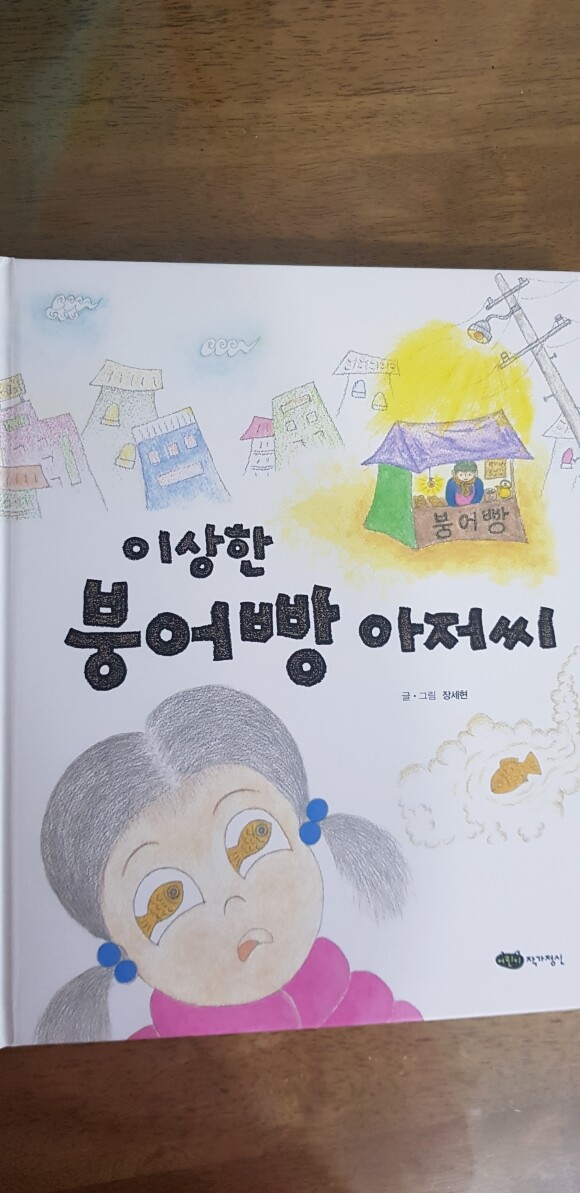 붕어빵
이상한
붕어빵 아저씨
글·그림 장세현
어린이 작가정신